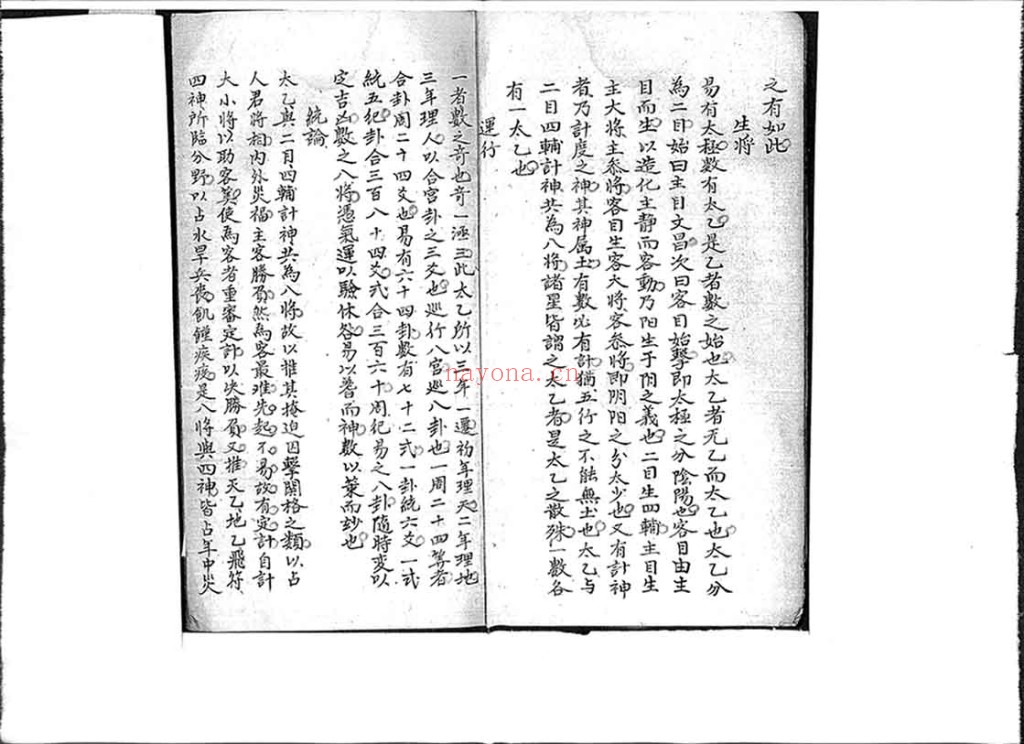 之有如此
生将
易有太極數有太乙是乙者數之始也太乙者无乙而太乙也太乙分
為二目始曰主目文昌次曰客目始擊即太極之分陰陽也客目由主
目而生以造化主靜而客動乃阳生于阴之義也二目生四輔主目生
主大将主参将客目生客大将客参将即阴阳之分太少也又有計神
者乃計度之神其神属土有數必有計猶五行之不能無土也太乙与
二目四輔計神共為八将諸星皆謂之太乙者是太乙之散殊一數各
有一太乙也
運行
一者數之奇也奇一函三此太乙所以三年一遷初年理天二年理地
三年理人以合宫卦之三爻也巡行八宫巡八卦也一周二十四筭者
合卦周二十四爻也易有六十四卦數有七十二式一卦統六爻一式
統五纪卦合三百八十四爻式合三百六十周纪易之八卦隨時变以
定吉凶數之八將憑氣運以驗休咎易以蓍而神數以策而妙也
統論
太乙與二目四輔計神共為八將故以推其掩迫囚擊關格之類以占
人君將相内外災福主客勝負然為客最难先起不易故有定計目計
大小將以助客筭使為客者重審定計以决勝負又推天乙地乙飛符
四神所臨分野以占水旱兵喪飢饉疾疫是八將與四神皆占年中災
nayona.cn